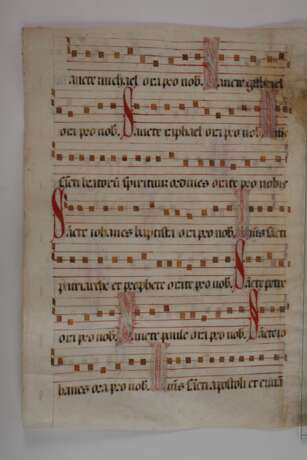 ancte michael ora pro nob Sancte gabriel
ora pro nob Sancte raphael ora pro nob Om̄s
sc̄ti beatorum spirituū ordines orate pro nobis
Sancte iohanes baptista ora pro nob Om̄s sc̄ti
patriarche et prophete orate pro nob Sancte petre
ora pro nob Sancte paule ora pro nob Sancte io
hanes ora pro nob Om̄s sc̄ti apostoli et euan